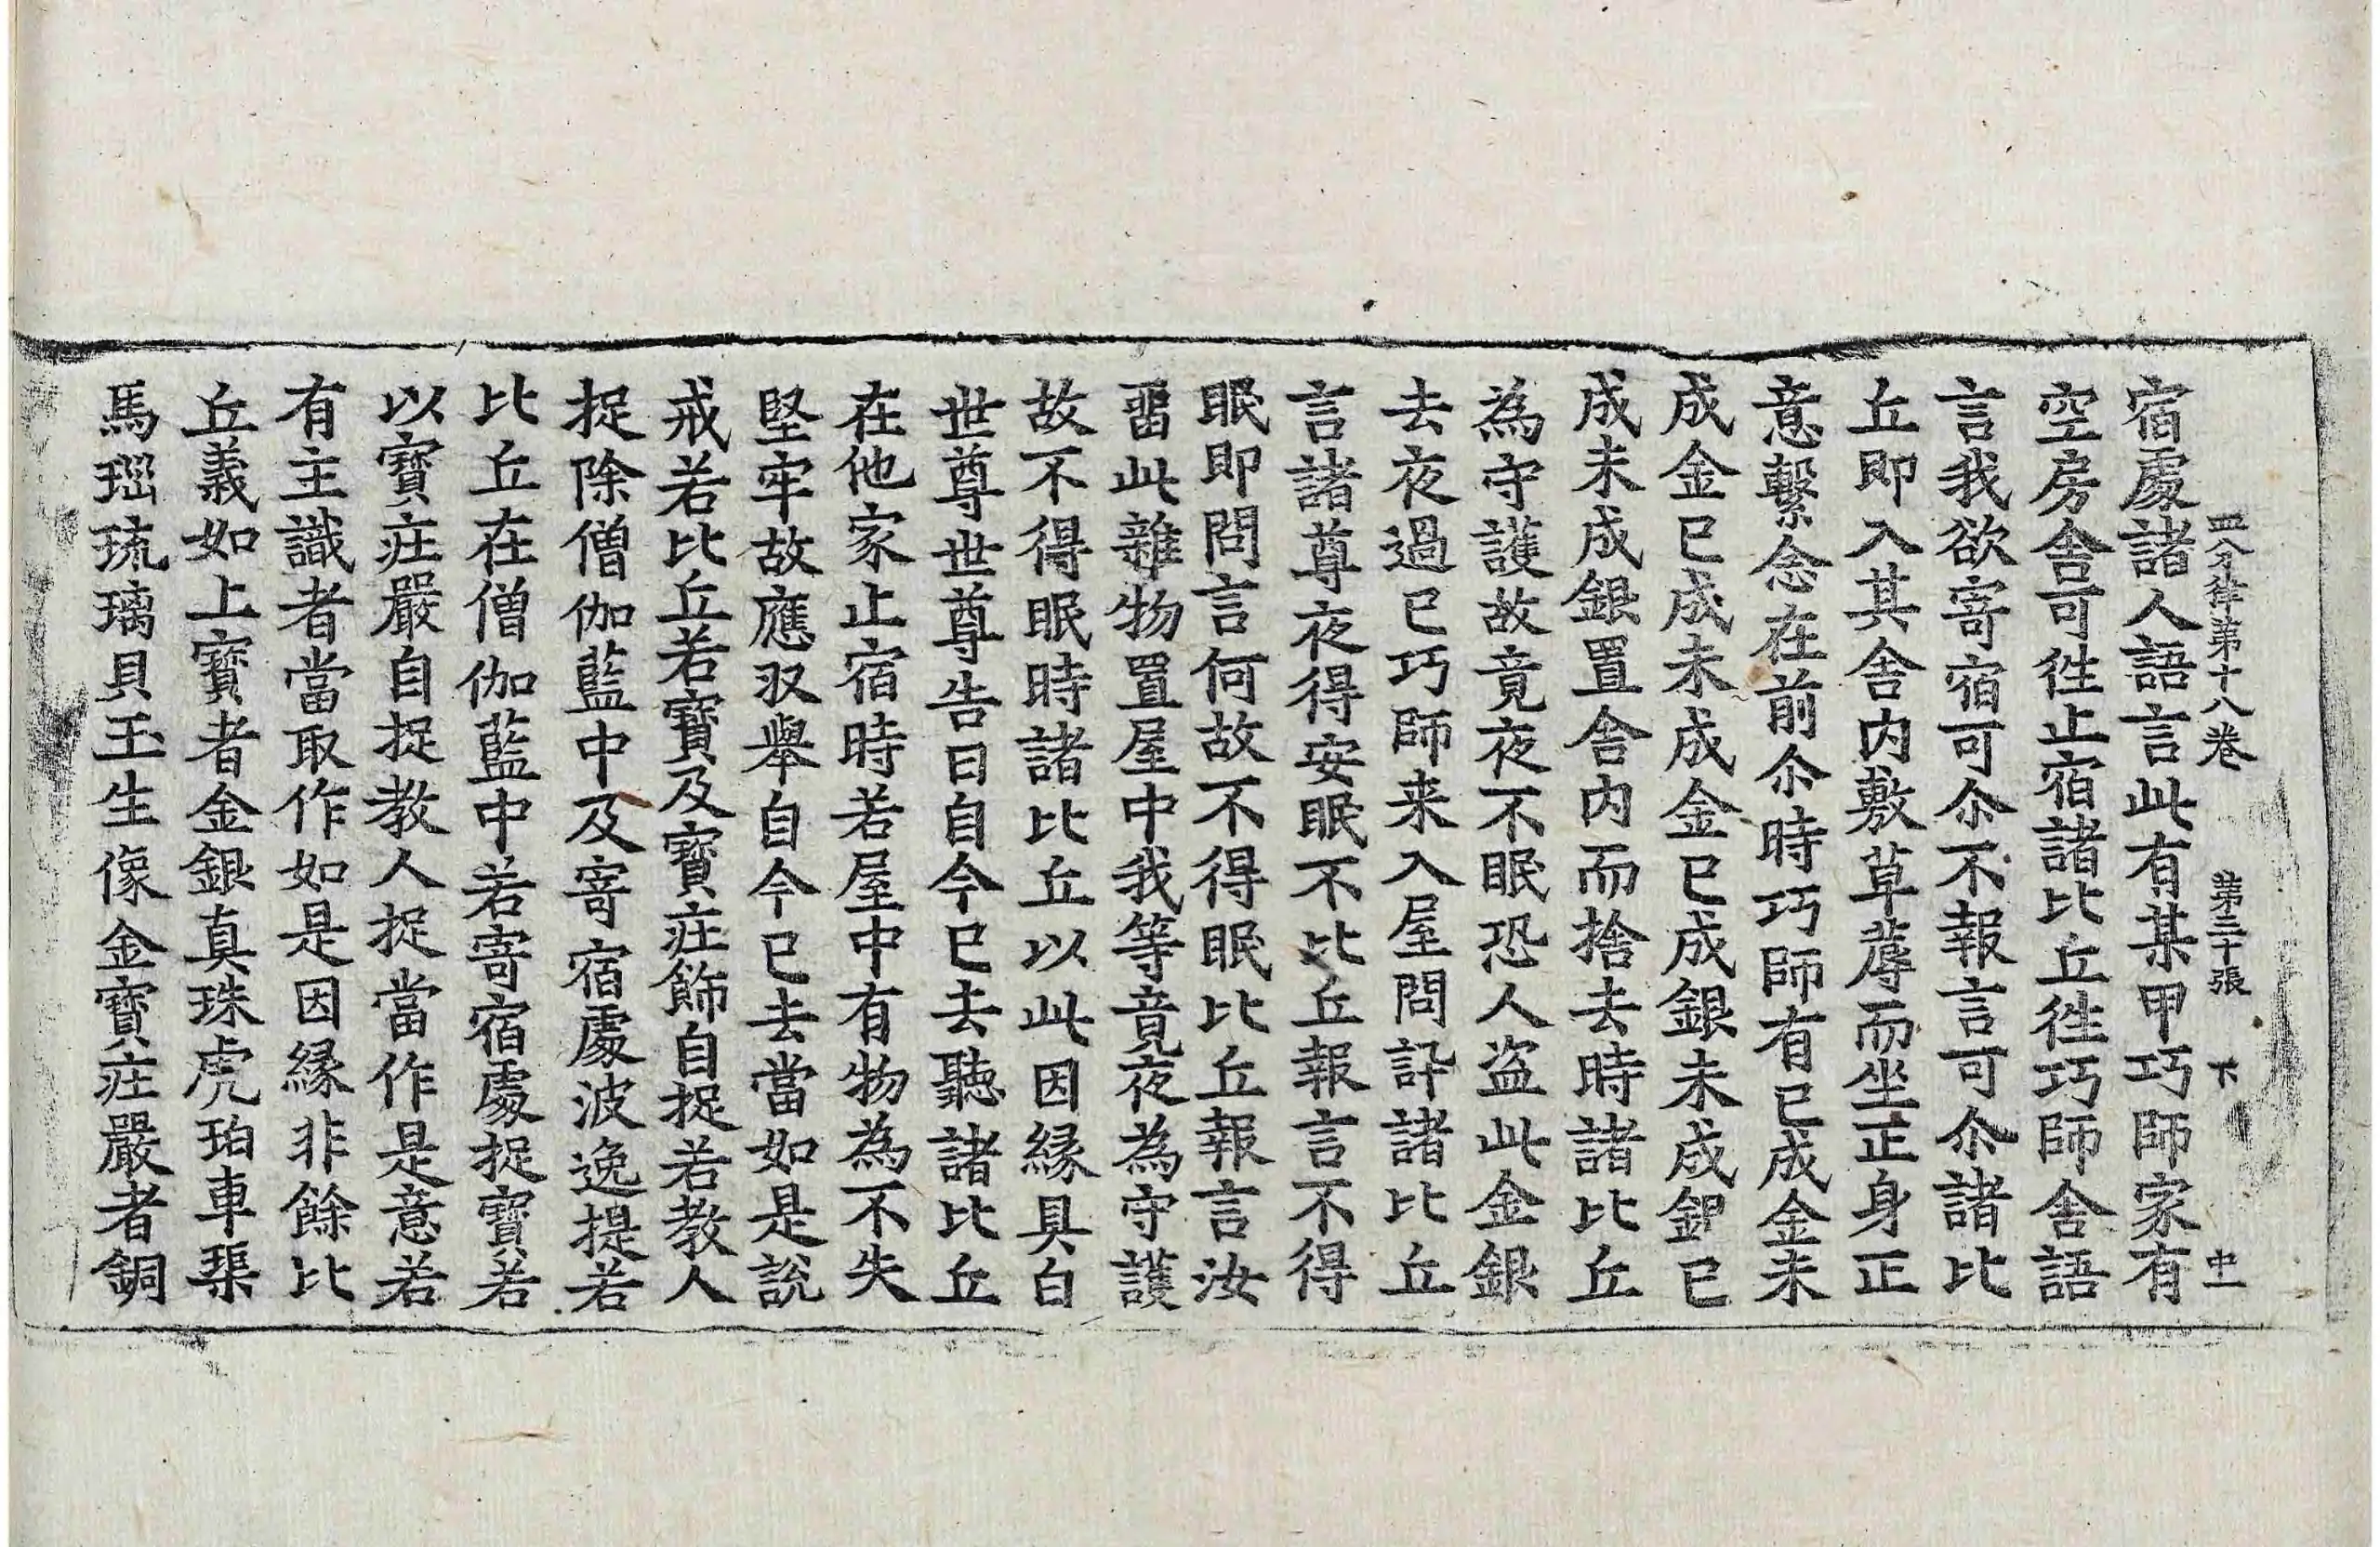 四分律第十八卷 第三十張 下 中一
宿處諸人語言此有某甲巧師家有
空房舍可徃止宿諸比丘徃巧師舍語
言我欲寄宿可尒不報言可尒諸比
丘即入其舍内敷草蓐而坐正身正
意繫念在前尒時巧師有已成金未
成金已成未成金已成銀未成銀已
成未成銀置舍内而捨去時諸比丘
為守護故竟夜不眠恐人盜此金銀
去夜過已巧師来入屋問訊諸比丘
言諸尊夜得安眠不比丘報言不得
眠即問言何故不得眠比丘報言汝
留此雜物置屋中我等竟夜為守護
故不得眠時諸比丘以此因緣具白
世尊世尊告曰自今已去聽諸比丘
在他家止宿時若屋中有物為不失
堅牢故應収舉自今已去當如是說
戒若比丘若寶及寶庄飾自捉若教人
捉除僧伽藍中及寄宿處波逸提若
比丘在僧伽藍中若寄宿處捉寶若
以寶庄嚴自捉教人捉當作是意若
有主識者當取作如是因緣非餘比
丘義如上寶者金銀真珠虎珀車璖
馬瑙琉璃貝玉生像金寶庄嚴者銅